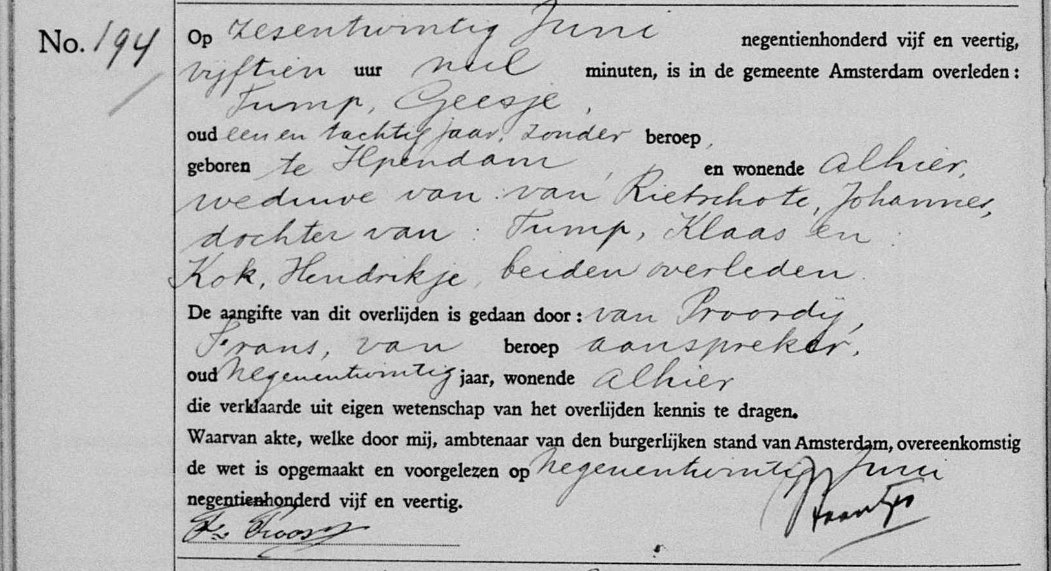 No. 194
Op zesentwintig Juni negentienhonderd vijf en veertig,
vijftien uur nul minuten, is in de gemeente Amsterdam overleden:
Tump, Geesje,
oud een en tachtig jaar, zonder beroep,
geboren te Ilpendam, en wonende alhier,
weduwe van: van Rietschote, Johannes,
dochter van: Tump, Klaas en:
Kok, Hendrikje, beiden overleden.
De aangifte van dit overlijden is gedaan door: van Proordij,
Frans, van beroep aanspreker,
oud negenentwintig jaar, wonende alhier
die verklaarde uit eigen wetenschap van het overlijden kennis te dragen.
Waarvan akte, welke door mij, ambtenaar van den burgerlijken stand van Amsterdam, overeenkomstig
de wet is opgemaakt en voorgelezen op negenentwintig Juni
negentienhonderd vijf en veertig.